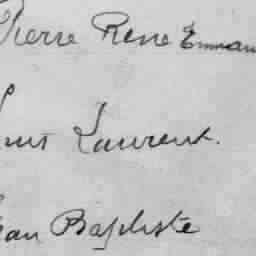 Pierre Rene Emman
Louis Laurent.
Jean Baptiste